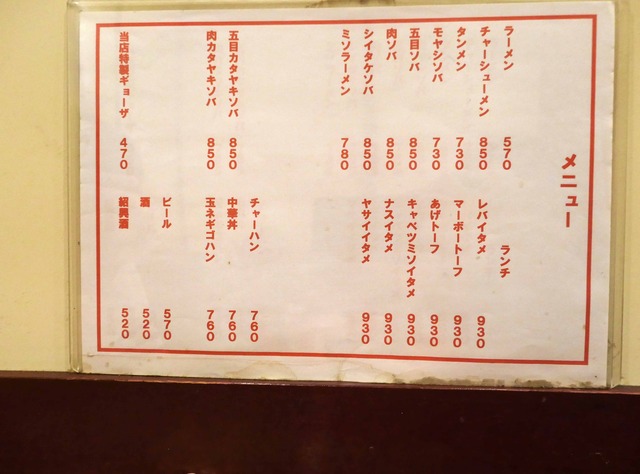 メニュー
ラーメン 570
チャーシューメン 850
タンメン 730
モヤシソバ 730
五目ソバ 850
肉ソバ 850
シイタケソバ 850
ミソラーメン 780
五目カタヤキソバ 850
肉カタヤキソバ 850
当店特製ギョーザ 470
ランチ
レバイタメ 930
マーボートーフ 930
あげトーフ 930
キャベツミソイタメ 930
ナスイタメ 930
ヤサイイタメ 930
チャーハン 760
中華丼 760
玉ネギゴハン 760
ビール 570
酒 520
紹興酒 520